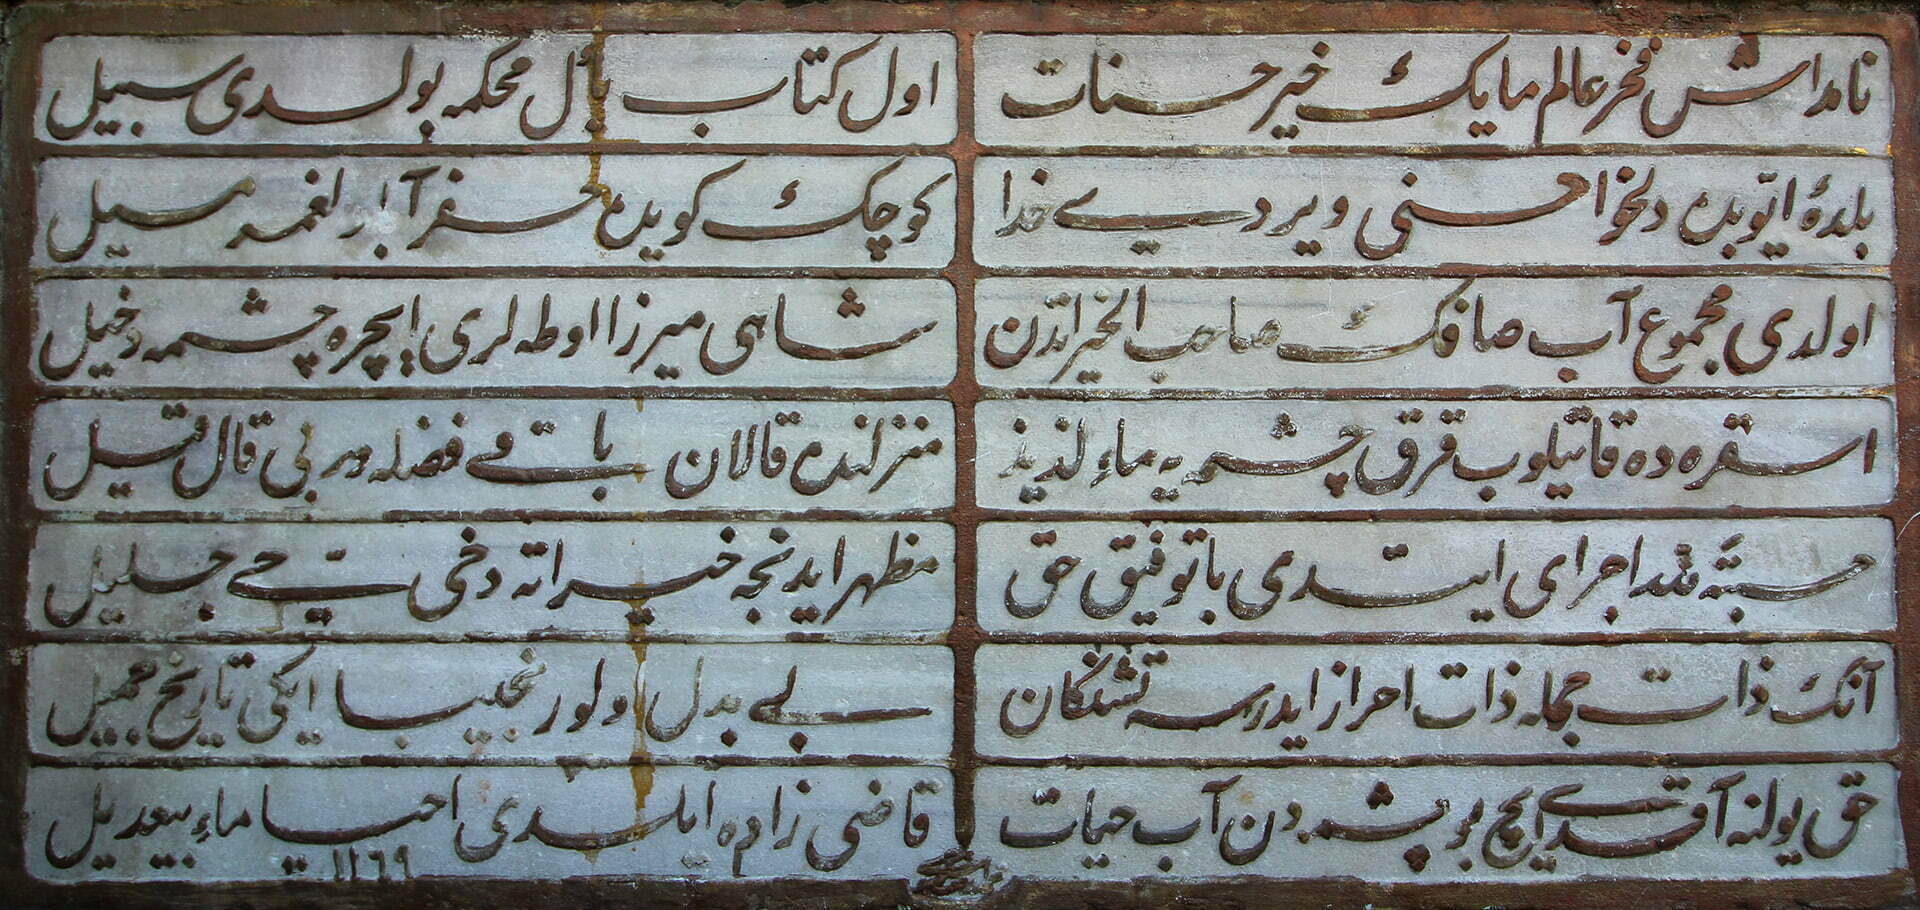 نامداش فخر عالم مایك خیر حسنات
اول كتاب محكمه بولدی سبیل
بلدۀ ایوبده دلخوا حسنی ویردی خدا
كوچك كویده حفر آبار لغمه میل
اولدی مجموع آب صافك صاحب الخیراتدن
شاهی میرزا اوطه لری ایچره چشمه دخیل
استقره ده قاتیلوب قرق چشمه یه ماء لذیذ
منزلنده قالان باقی فضله در بی قال قیل
حسبة لله اجرای ایتدی با توفیق حق
مظهر ایدنجه خیراته دخی حی جلیل
آنك ذات جمله ذات احراز ایدرسه تشنكان
بی بدل اولور نجیبا ایكی تاریخ جمیل
حق یولنه آقدی ایچ بو چشمه دن آب حیات
قاضی زاده ایلدی احیا ماء بیعدیل
١١٦٩